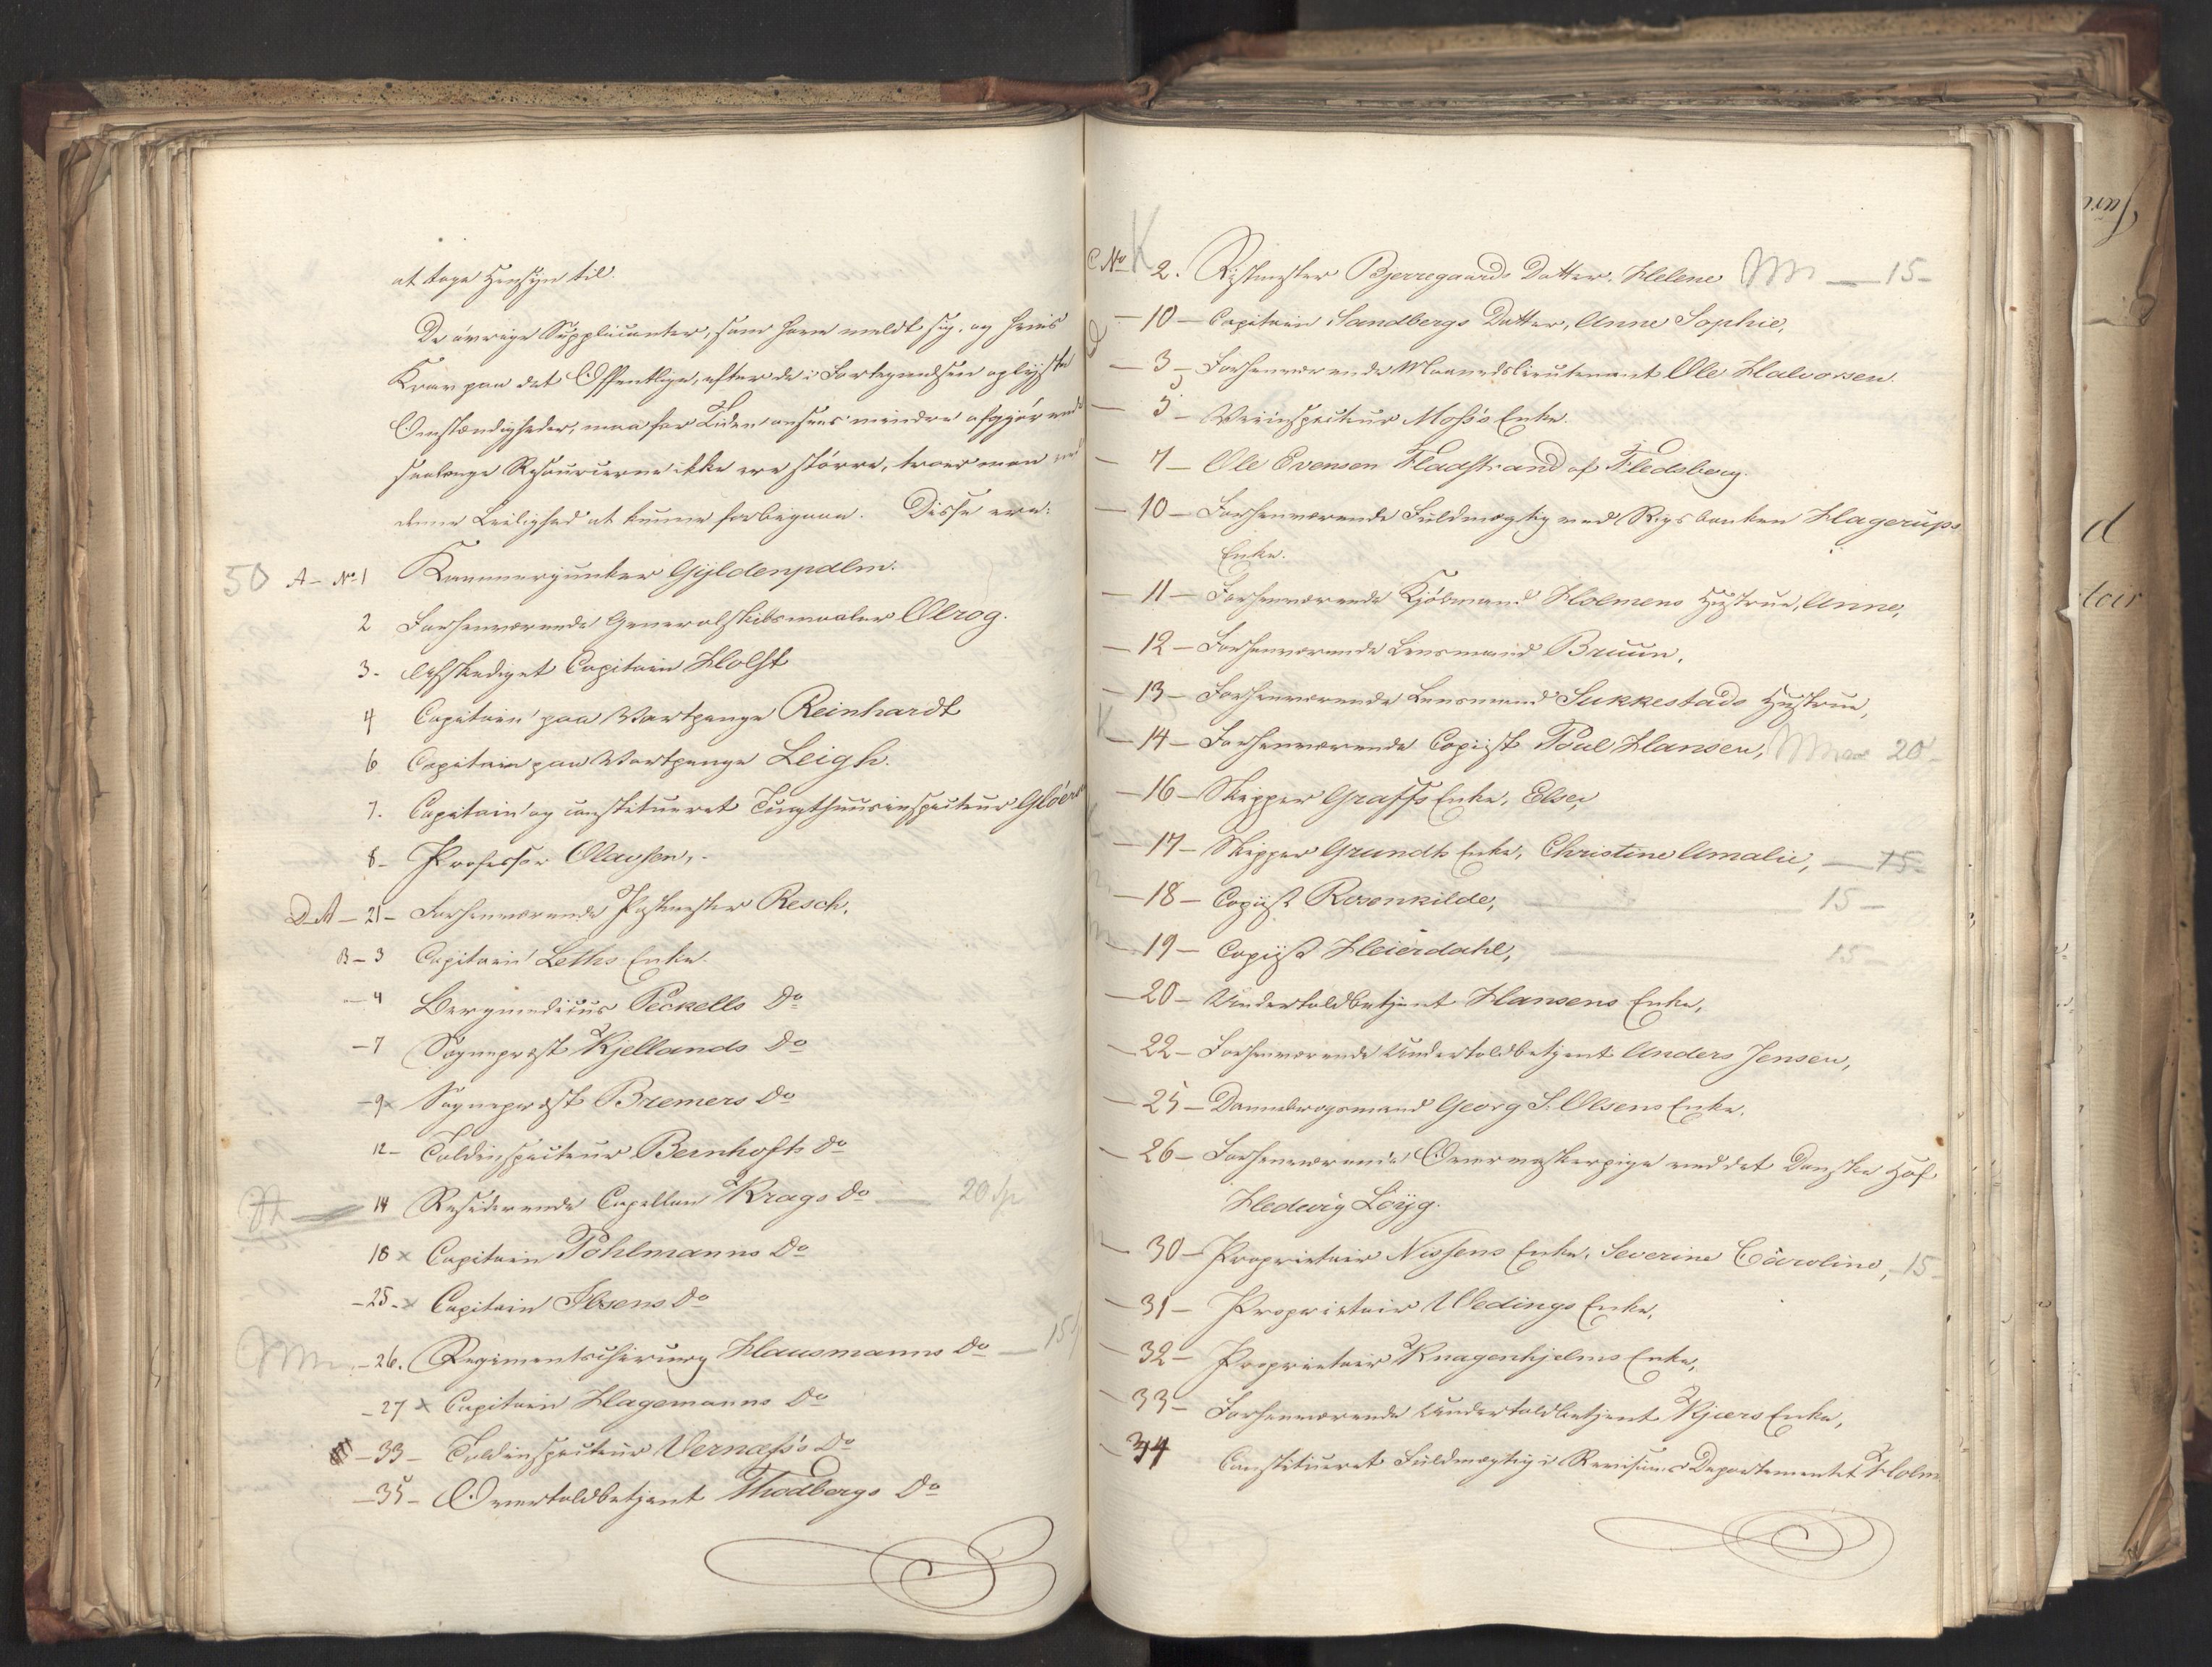 at tage Hensyn til.
De øvrige Supplicanter, som have meldt sig, og hvis
Krav paa det Offentlige, efter de i Fortegnelsen oplyste
Omstændigheder, maa for Tiden ansees mindre afgjørende
saalænge Ressourcerne ikke ere større, troer man ved
denne Leilighed at kunne forbigaae. Disse ere:
50 A - No 1 Kammerjunker Gyldenpalm.
2 Forhenværende Generalskibsmaaler Olrog.
3. Afskediget Capitain Holst
4 Capitain paa Vartpenge Reinhardt
6 Capitain paa Vartpenge Leigh.
7. Capitain og constitueret Tugthuusinspecteur Gløersen
8 - Professor Olavsen,
D. A - 21 - Forhenværende Postmester Resch,
B - 3 Capitain Leths Enke.
- 4 Bergmedicus Peckells Do
- 7 Sogneprest Kjellands Do
- 9 x Sogneprest Bremers Do
12 - Toldinspecteur Bernhofts Do
14 Residerende Capellan Krags Do — 20 Sp
18 x Capitain Pohlmanns Do
- 25 - x Capitain Ibsens Do
- 26. Regimentschirurg Hausmanns Do — 15
- 27 x Capitain Hagemanns Do
- 33 - Toldinspecteur Vernæss's Do
- 35 - Overtoldbetjent Thodbergs Do
C No K 2. Ristmester Bjerregaards Datter, Helene — 15 -
- 10 - Capitain Sandbergs Datter, Anne Sophie,
- 3 - Forhenværende Maanedslieutenant Ole Halvorsen.
- 5 - Veiinspecteur Moss's Enke.
- 7 - Ole Evensen Fladstrand af Fledsberg.
- 10 - Forhenværende Fuldmægtig ved Rigsbanken Hagerups
Enke.
- 11 - Forhenværende Kjøbmand Holmens Hustrue, Anne,
- 12 - Forhenværende Lensmand Bruun,
- 13 - Forhenværende Lensmand Sukkestads Hustrue,
K - 14 - Forhenværende Copiist Poul Hansen, 20 -
- 16 - Skipper Graffs Enke, Else,
- 17 - Skipper Grundts Enke, Christine Amalie, — 15 -
- 18 - Copiist Rosenkilde, — 15 -
- 19 - Copiist Heierdahl, — 15 -
- 20 - Undertoldbetjent Hansens Enke,
- 22 - Forhenværende Undertoldbetjent Anders Jensen,
- 25 - Dannebrogsmand Georg S. Olsens Enke,
- 26 - Forhenværende Overvaskerpige ved det Danske Hof
Hedwig Löyg.
- 30 - Proprietair Nissens Enke, Severine Caroline, - 15 -
- 31 - Proprietair Wedings Enke,
- 32 - Proprietair Knagenhjelms Enke,
- 33 - Forhenværende Undertoldbetjent Kjærs Enke,
- 34 Constitueret Fuldmægtig i Revisions Departementet Holm